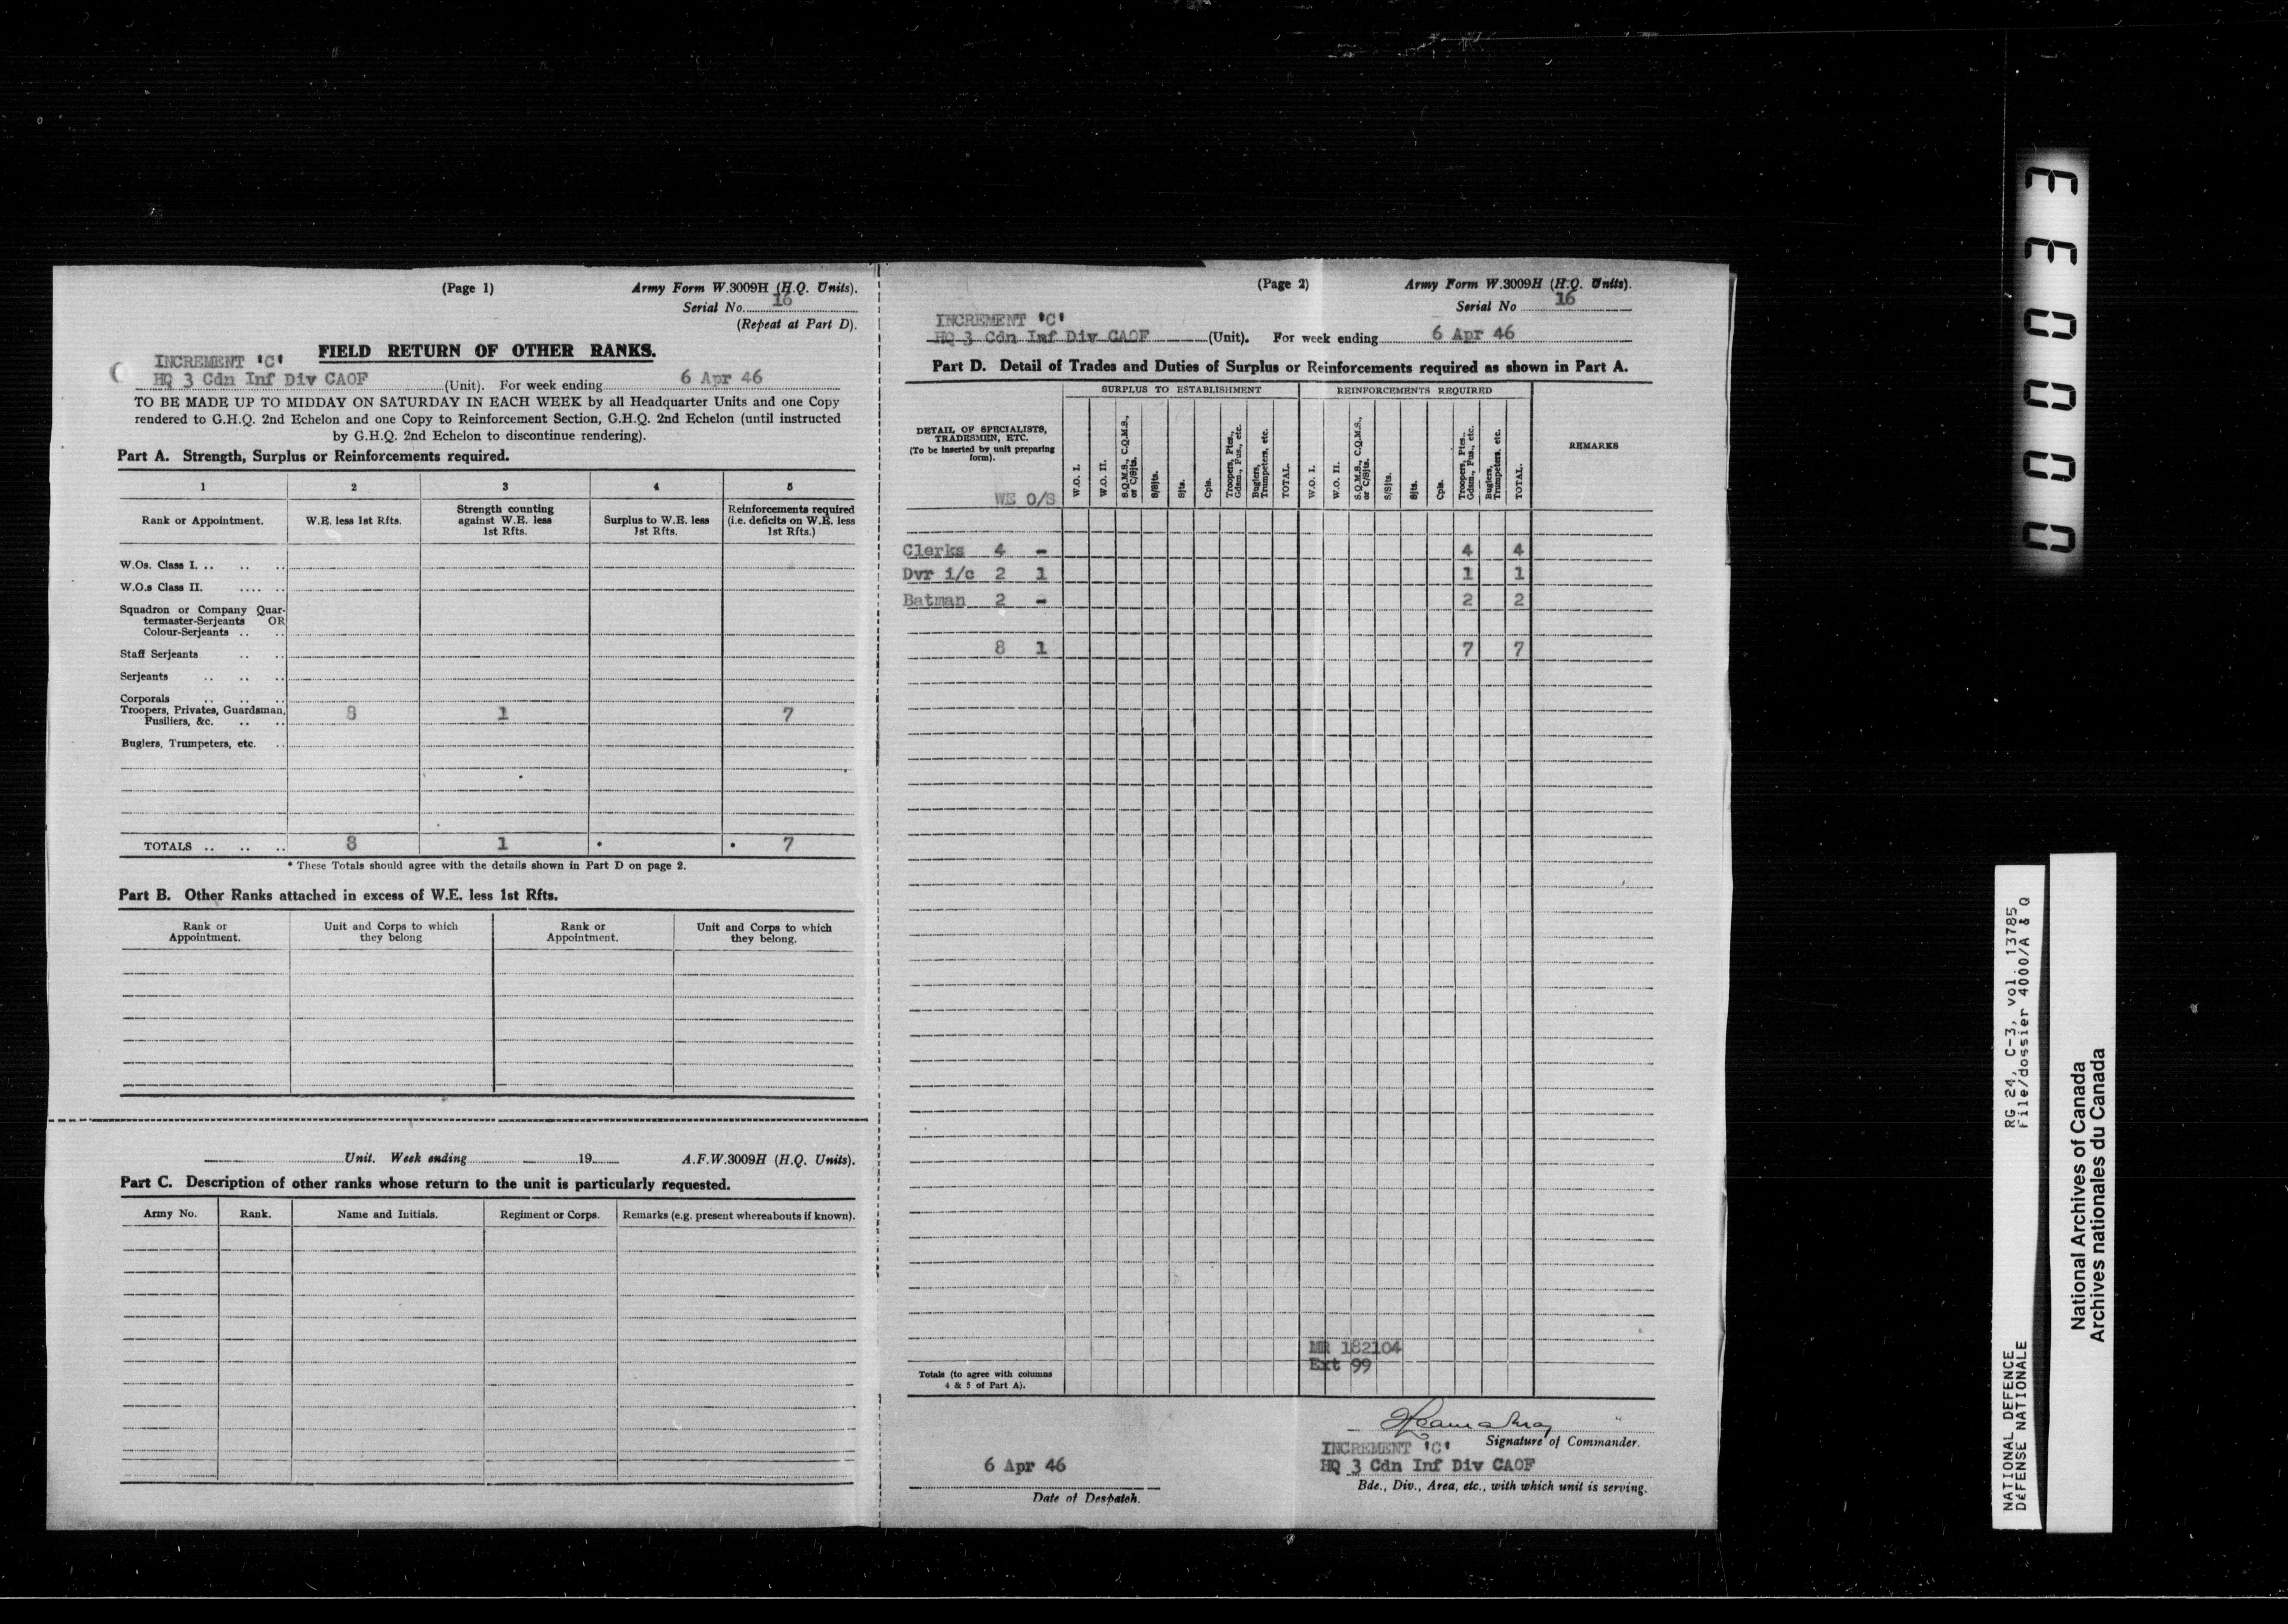 (Page 1)
Army Form W.3009H (H.Q. Units).
Serial No. 16
(Repeat at Part D).
FIELD RETURN OF OTHER RANKS.
INCREMENT 'C'
HQ 3 Cdn Inf Div CAOF (Unit). For week ending 6 Apr 46
TO BE MADE UP TO MIDDAY ON SATURDAY IN EACH WEEK by all Headquarter Units and one Copy
rendered to G.H.Q. 2nd Echelon and one Copy to Reinforcement Section, G.H.Q. 2nd Echelon (until instructed
by G.H.Q. 2nd Echelon to discontinue rendering).
Part A. Strength, Surplus or Reinforcements required.
1 2 3 4 5
Rank or Appointment.
W.E. less 1st Rfts.
Strength counting
against W.E. less
1st Rfts.
Surplus to W.E. less
1st Rfts.
Reinforcements required
(i.e. deficits on W.E. less
1st Rfts.)
W.Os. Class I. .. .. ..
W.O.s Class II. .... ..
Squadron or Company Quar-
termaster-Serjeants OR
Colour-Serjeants .. ..
Staff Serjeants .. ..
Serjeants .. .. ..
Corporals .. .. ..
Troopers, Privates, Guardsman,
Fusiliers, &c. .. .. 8 1 7
Buglers, Trumpeters, etc. ..
TOTALS .. .. .. 8 1 • • 7
* These Totals should agree with the details shown in Part D on page 2.
Part B. Other Ranks attached in excess of W.E. less 1st Rfts.
Rank or
Appointment.
Unit and Corps to which
they belong
Rank or
Appointment.
Unit and Corps to which
they belong.
Unit. Week ending 19 A.F.W.3009H (H.Q. Units).
Part C. Description of other ranks whose return to the unit is particularly requested.
Army No. Rank. Name and Initials. Regiment or Corps. Remarks (e.g. present whereabouts if known).
(Page 2)
Army Form W.3009H (H.Q. Units).
Serial No 16
INCREMENT 'C'
HQ 3 Cdn Inf Div CAOF (Unit). For week ending 6 Apr 46
Part D. Detail of Trades and Duties of Surplus or Reinforcements required as shown in Part A.
SURPLUS TO ESTABLISHMENT REINFORCEMENTS REQUIRED
DETAIL OF SPECIALISTS,
TRADESMEN, ETC.
(To be inserted by unit preparing
form).
WE O/S
W.O. I.
W.O. II.
S.Q.M.S., C.Q.M.S.,
or C/Sjts.
S/Sjts.
Sjts.
Cpls.
Troopers, Ptes.,
Gdsm., Fus., etc.
Buglers,
Trumpeters, etc.
TOTAL.
W.O. I.
W.O. II.
S.Q.M.S., C.Q.M.S.,
or C/Sjts.
S/Sjts.
Sjts.
Cpls.
Troopers, Ptes.,
Gdsm., Fus., etc.
Buglers,
Trumpeters, etc.
TOTAL.
REMARKS
Clerks 4 - 4 4
Dvr i/c 2 1 1 1
Batman 2 - 2 2
8 1 7 7
MR 182104
Ext 99
Totals (to agree with columns
4 & 5 of Part A).
Signature of Commander.
INCREMENT 'C'
6 Apr 46 HQ 3 Cdn Inf Div CAOF
Date of Despatch.
Bde., Div., Area, etc., with which unit is serving.
000033
RG 24, C-3, vol. 13785
File/dossier 4000/A & Q
NATIONAL DEFENCE
DÉFENSE NATIONALE
National Archives of Canada
Archives nationales du Canada